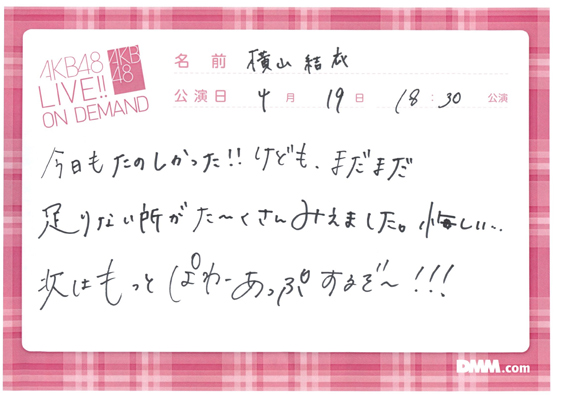 AKB48
LIVE!!
ON DEMAND
AKB
48
名前 横山結衣
公演日 4月19日 18:30 公演
今日もたのしかった!! けども、まだまだ
足りない所がた〜くさんみえました。悔しい..
次はもっとぱわーあっぷするぞ〜!!!
DMM.com